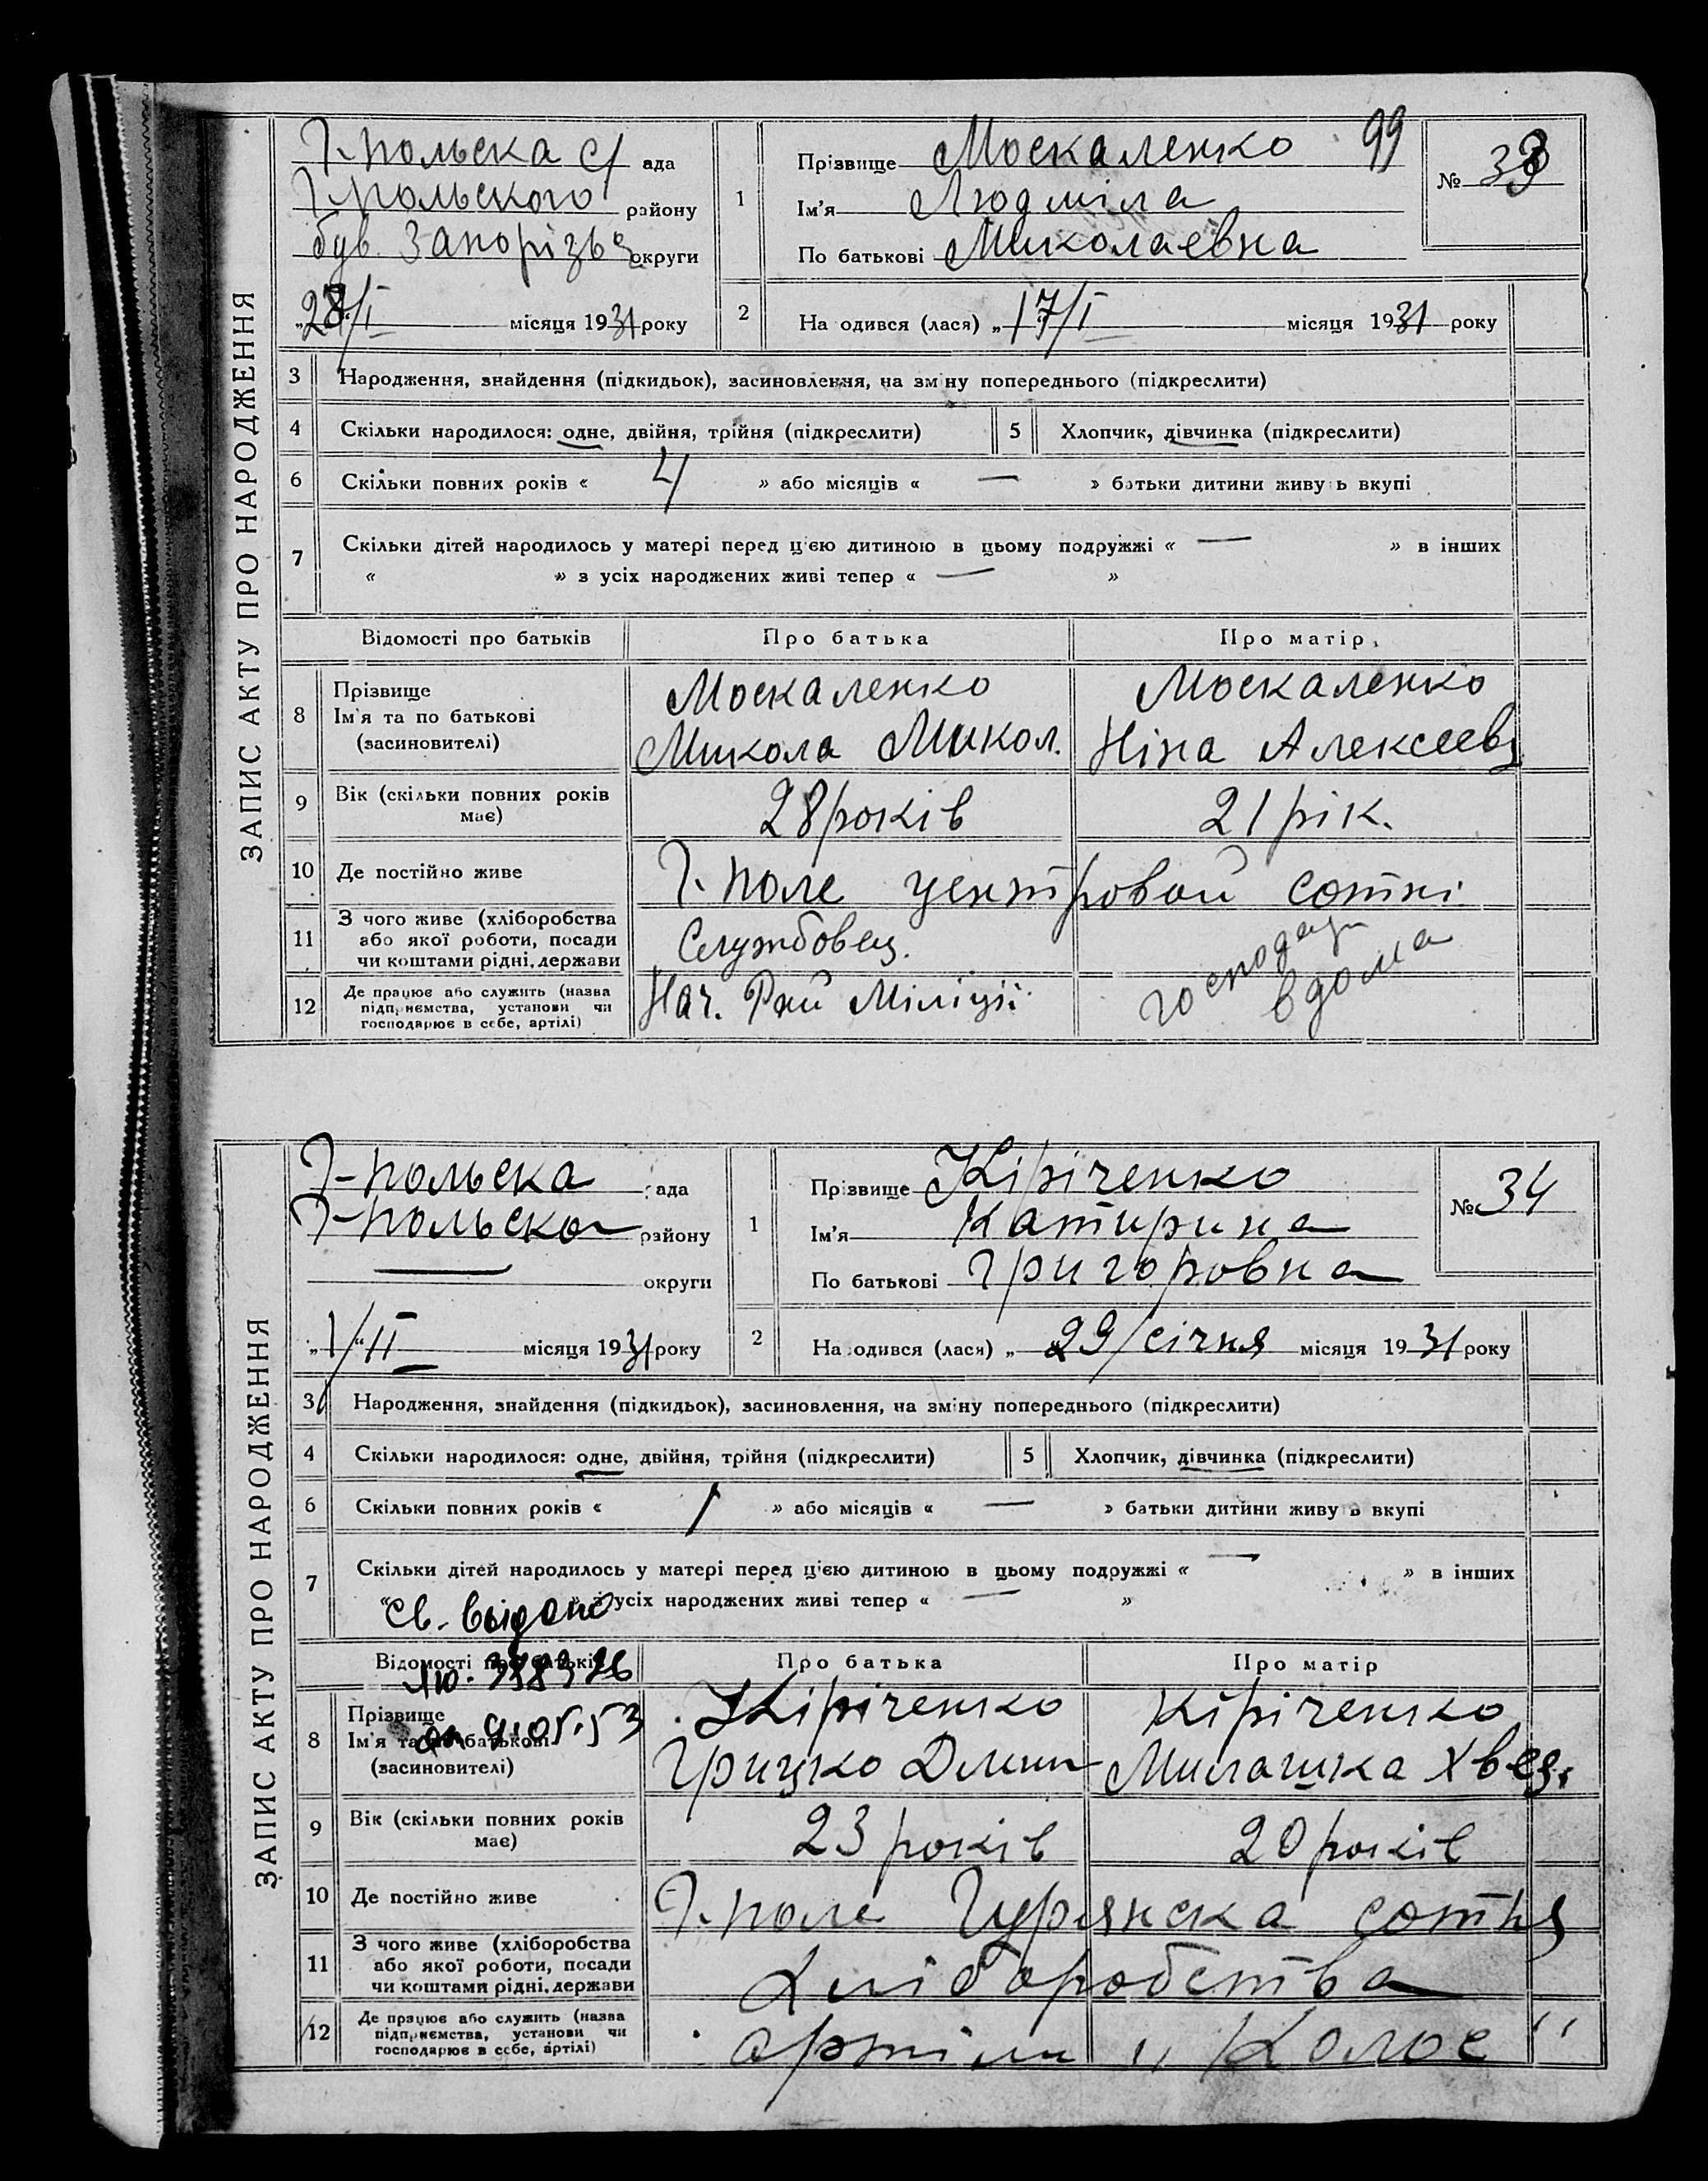 ЗАПИС АКТУ ПРО НАРОДЖЕННЯ
Г-польска с/ ада
Г-польского району
був. Запорізьк округи
„28/I місяця 1931 року
1 Прізвище Москаленко 99
Ім'я Людміла
По батькові Миколаевна
№ 33
2 На одився (лася) „17/I місяця 1931 року
3 Народження, знайдення (підкидьок), засиновлення, на зміну попереднього (підкреслити)
4 Скільки народилося: одне, двійня, трійня (підкреслити) 5 Хлопчик, дівчинка (підкреслити)
6 Скільки повних років « 4 » або місяців « — » батьки дитини живуть вкупі
7 Скільки дітей народилось у матері перед ц'єю дитиною в цьому подружжі « — » в інших
« » з усіх народжених живі тепер « — »
Відомості про батьків Про батька Про матір
8 Прізвище
Ім'я та по батькові
(засиновителі)
Москаленко
Микола Микол.
Москаленко
Ніна Алексеевн
9 Вік (скільки повних років
має)
28 років 21 рік.
10 Де постійно живе Г. поле центровой сотні
11 З чого живе (хліборобства
або якої роботи, посади
чи коштами рідні, держави
Службовец.
12 Де працює або служить (назва
підприємства, установи чи
господарює в себе, артілі)
Нач. Рай Міліції
вдома
ЗАПИС АКТУ ПРО НАРОДЖЕННЯ
Г-польска ада
Г-польска району
— округи
„1/“II місяця 1931 року
1 Прізвище Кіріченко
Ім'я Катирина
По батькові Григоровна
№ 34
2 На одився (лася) „29/січня місяця 1931 року
3 Народження, знайдення (підкидьок), засиновлення, на зміну попереднього (підкреслити)
4 Скільки народилося: одне, двійня, трійня (підкреслити) 5 Хлопчик, дівчинка (підкреслити)
6 Скільки повних років « 1 » або місяців « — » батьки дитини живуть вкупі
7 Скільки дітей народилось у матері перед ц'єю дитиною в цьому подружжі « — » в інших
« » з усіх народжених живі тепер « — »
Св. видано
Відомості про батьків Про батька Про матір
8 Прізвище
Ім'я та по батькові
(засиновителі)
9.05.53
Кіріченко
Грицко Дмит
Кіріченко
Милашка Хвед.
9 Вік (скільки повних років
має)
23 років 20 років
10 Де постійно живе Г. поле Гурянска сотня
11 З чого живе (хліборобства
або якої роботи, посади
чи коштами рідні, держави
Хліборобства
12 Де працює або служить (назва
підприємства, установи чи
господарює в себе, артілі)
артіли „Колос“